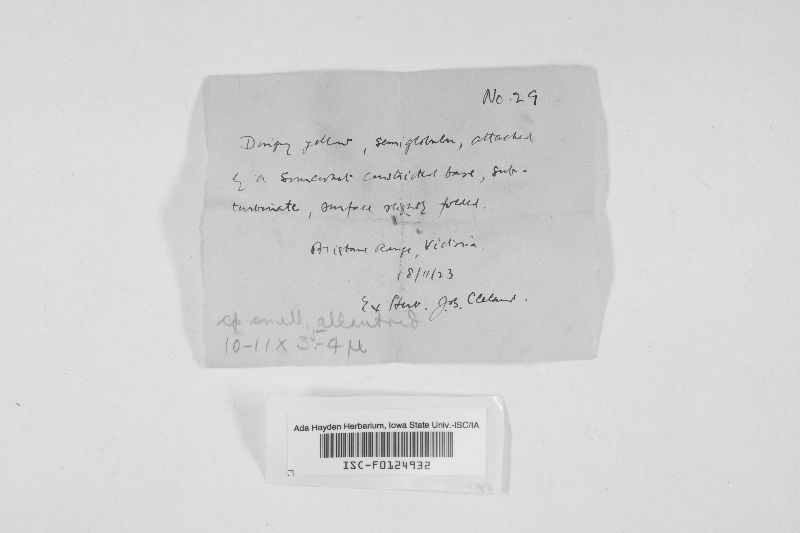 No. 29
Dingy yellow, semiglobular, attached
by a somewhat constricted base, sub-
turbinate, surface slightly folded.
Brisbane Range, Victoria.
18/11/23
Ex Herb. J.B. Cleland.
sp small, allantoid
10-11 x 3-4 µ
Ada Hayden Herbarium, Iowa State Univ.-ISC/IA
ISC-F0124932